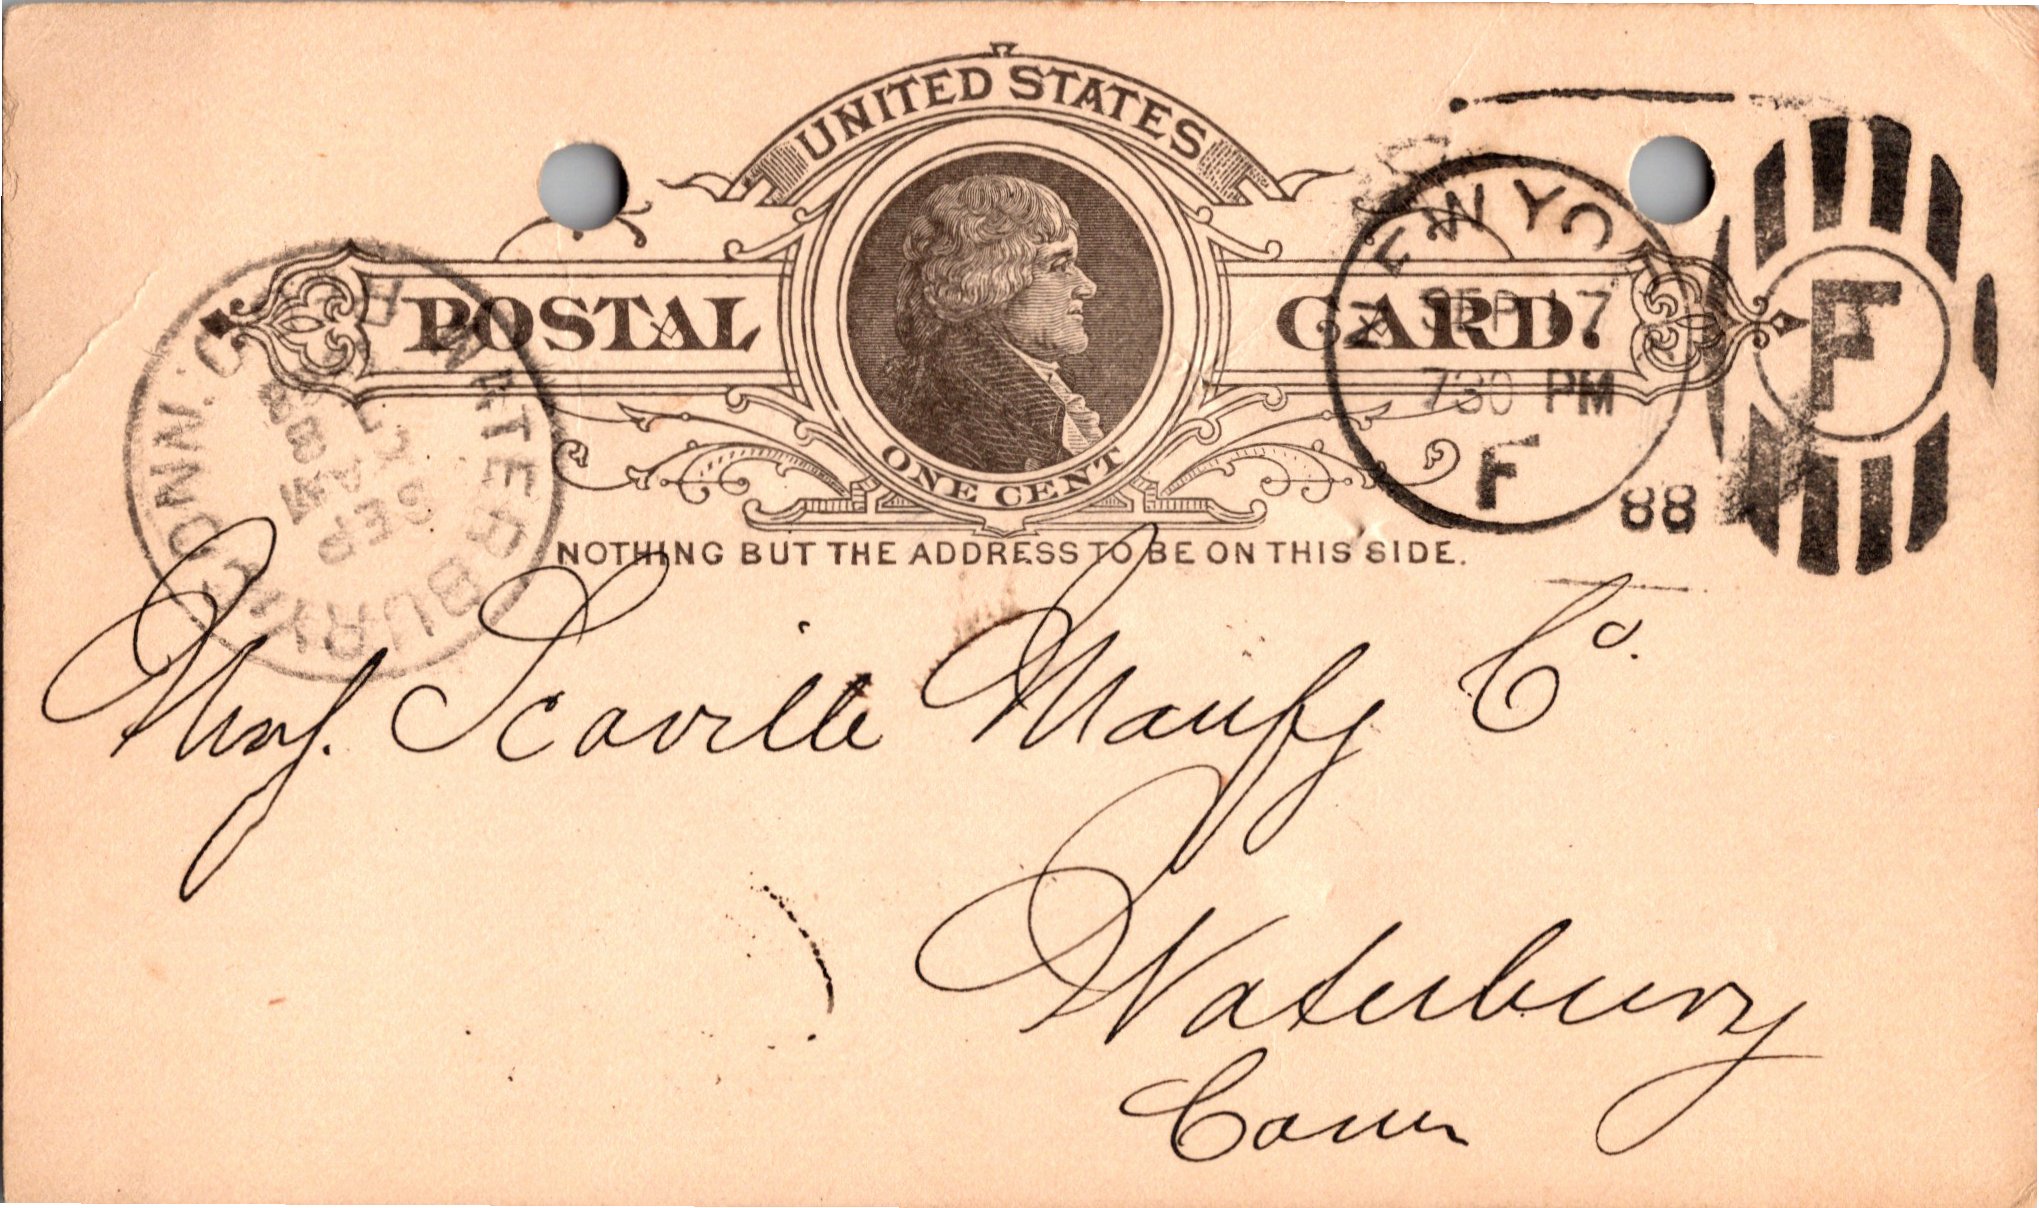 UNITED STATES
POSTAL CARD.
ONE CENT
NOTHING BUT THE ADDRESS TO BE ON THIS SIDE.
NEW YO
SEP 17
730 PM
F
88
F
WATERBURY CONN.
SEP
AM
88
REC'D
Mess. Scoville Manfg Co.
Waterbury
Conn